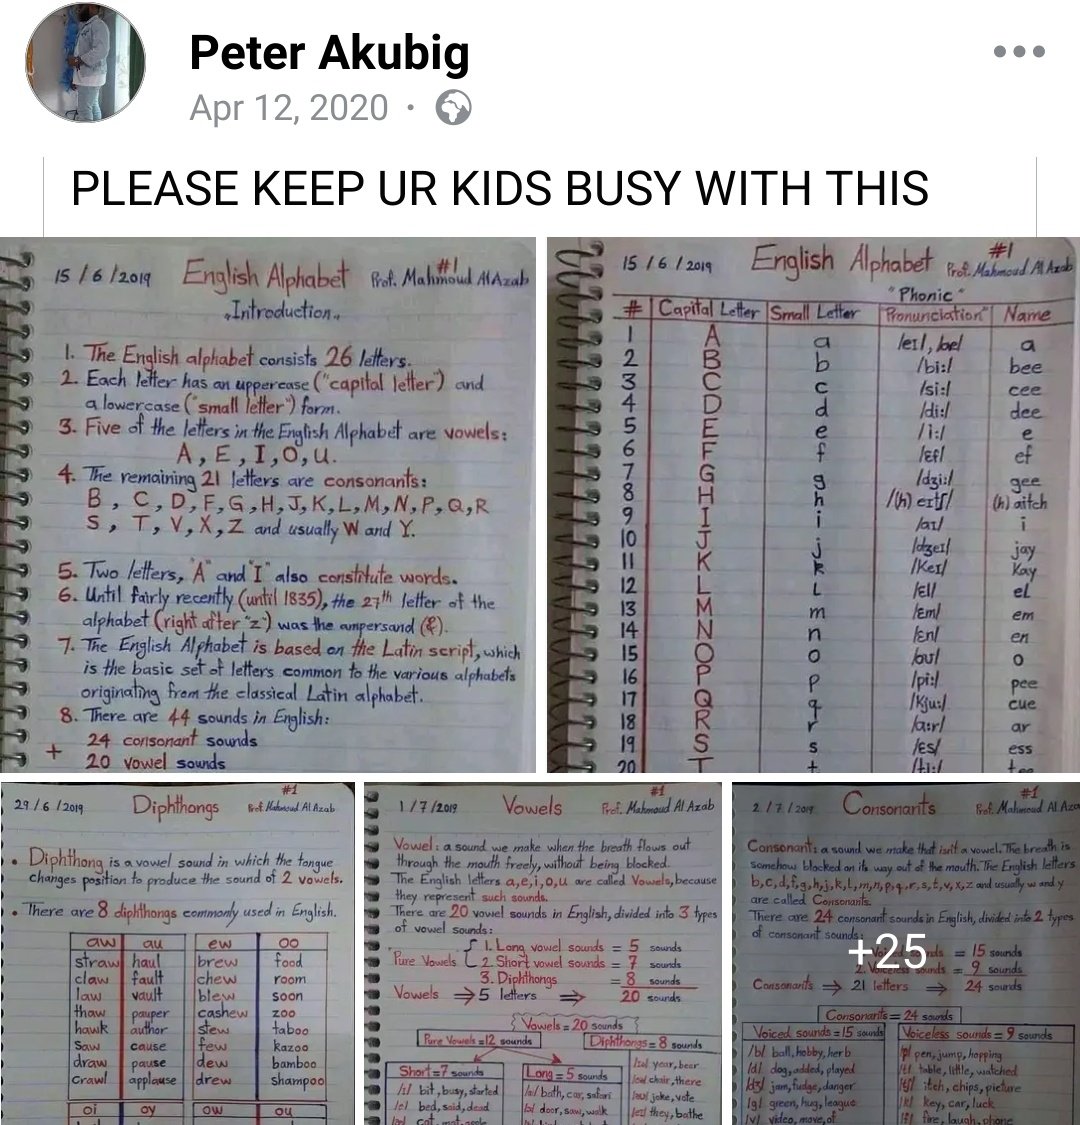 Peter Akubig
Apr 12, 2020
PLEASE KEEP UR KIDS BUSY WITH THIS
15/6/2019 English Alphabet #1 Prof. Mahmoud Al Azab
"Introduction"
1. The English alphabet consists 26 letters.
2. Each letter has an uppercase ("capital letter") and
a lowercase ("small letter") form.
3. Five of the letters in the English Alphabet are vowels:
A, E, I, O, U.
4. The remaining 21 letters are consonants:
B, C, D, F, G, H, J, K, L, M, N, P, Q, R
S, T, V, X, Z and usually W and Y.
5. Two letters, "A" and "I" also constitute words.
6. Until fairly recently (until 1835), the 27th letter of the
alphabet (right after "z") was the ampersand (&).
7. The English Alphabet is based on the Latin script, which
is the basic set of letters common to the various alphabets
originating from the classical Latin alphabet.
8. There are 44 sounds in English:
24 consonant sounds
+ 20 vowel sounds
15/6/2019 English Alphabet #1 Prof. Mahmoud Al Azab
"Phonic"
# Capital Letter Small Letter Pronunciation" Name
1 A a /eɪ/, /æ/ a
2 B b /bi:/ bee
3 C c /si:/ cee
4 D d /di:/ dee
5 E e /i:/ e
6 F f /ɛf/ ef
7 G g /dʒi:/ gee
8 H h /(h)eɪtʃ/ (h)aitch
9 I i /aɪ/ i
10 J j /dʒeɪ/ jay
11 K k /keɪ/ kay
12 L L /ɛl/ el
13 M m /ɛm/ em
14 N n /ɛn/ en
15 O o /oʊ/ o
16 P p /pi:/ pee
17 Q q /kju:/ cue
18 R r /ɑ:r/ ar
19 S s /ɛs/ ess
20 T t /ti:/ tee
29/6/2019 Diphthongs #1 Prof. Mahmoud Al Azab
• Diphthong is a vowel sound in which the tongue
changes position to produce the sound of 2 vowels.
• There are 8 diphthongs commonly used in English.
aw au ew oo
straw haul brew food
claw fault chew room
law vault blew soon
thaw pauper cashew zoo
hawk author stew taboo
saw cause few kazoo
draw pause dew bamboo
crawl applause drew shampoo
oi oy ow ou
1/7/2019 Vowels #1 Prof. Mahmoud Al Azab
Vowel: a sound we make when the breath flows out
through the mouth freely, without being blocked.
The English letters a,e,i,o,u are called Vowels, because
they represent such sounds.
There are 20 vowel sounds in English, divided into 3 types
of vowel sounds:
1. Long vowel sounds = 5 sounds
Pure Vowels 2. Short vowel sounds = 7 sounds
3. Diphthongs = 8 sounds
Vowels → 5 letters ⇒ 20 sounds
Vowels = 20 sounds
Pure Vowels = 12 sounds Diphthongs = 8 sounds
Short = 7 sounds Long = 5 sounds
year, bear
chair, there
/ɪ/ bit, busy, started bath, car, safari joke, vote
/e/ bed, said, dead door, saw, walk they, bathe
2/7/2019 Consonants #1 Prof. Mahmoud Al Azab
Consonant: a sound we make that isn't a vowel. The breath is
somehow blocked on its way out of the mouth. The English letters
b, c, d, f, g, h, j, k, l, m, n, p, q, r, s, t, v, x, z and usually w and y
are called Consonants.
There are 24 consonant sounds in English, divided into 2 types
of consonant sounds:
+25
sounds = 15 sounds
2. Voiceless sounds = 9 sounds
Consonants → 21 letters → 24 sounds
Consonants = 24 sounds
Voiced sounds = 15 sounds Voiceless sounds = 9 sounds
/b/ ball, hobby, herb /p/ pen, jump, hopping
/d/ dog, added, played /t/ table, little, watched
/dʒ/ jam, fudge, danger /tʃ/ itch, chips, picture
/g/ green, hug, league /k/ key, car, luck
/v/ video, move, of /f/ fire, laugh, phone